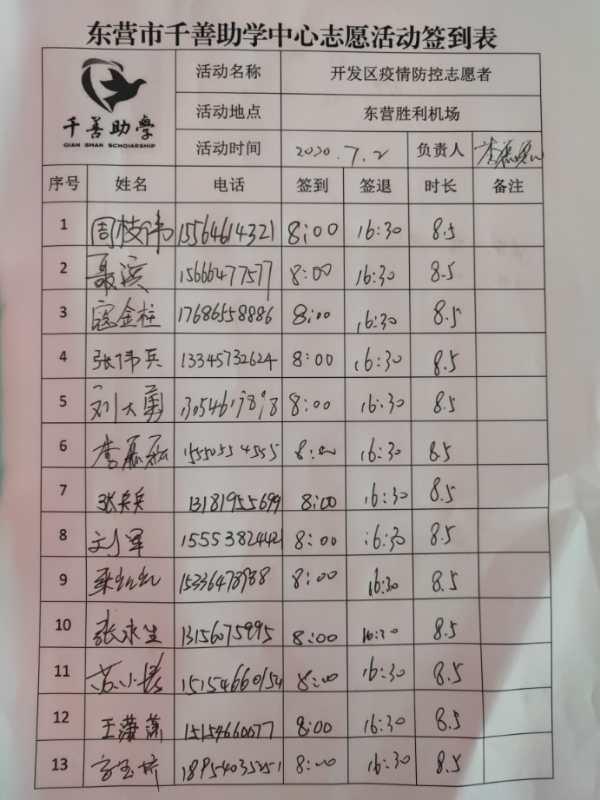 东营市千善助学中心志愿活动签到表
千善助学
QIAN SHAN SCHOLARSHIP
活动名称 开发区疫情防控志愿者
活动地点 东营胜利机场
活动时间 2020.7.2 负责人
序号 姓名 电话 签到 签退 时长 备注
1 周枝伟 15564614321 8:00 16:30 8.5
2 聂滨 15666477577 8:00 16:30 8.5
3 寇金柱 17686558886 8:00 16:30 8.5
4 张伟兵 13345732624 8:00 16:30 8.5
5 刘大勇 8:00 16:30 8.5
6 李磊磊 15550554555 8:00 16:30 8.5
7 张兵兵 13181955699 8:00 16:30 8.5
8 刘军 15553824421 8:00 16:30 8.5
9 8:00 16:30 8.5
10 张永生 13156075995 8:00 16:30 8.5
11 苏小장 15154660154 8:00 16:30 8.5
12 王潇潇 15154660077 8:00 16:30 8.5
13 18954035251 8:00 16:30 8.5